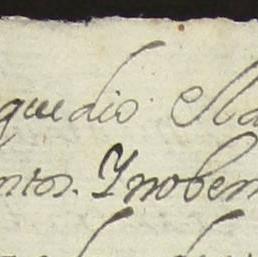 que dio Ma
ntos. Ynoben